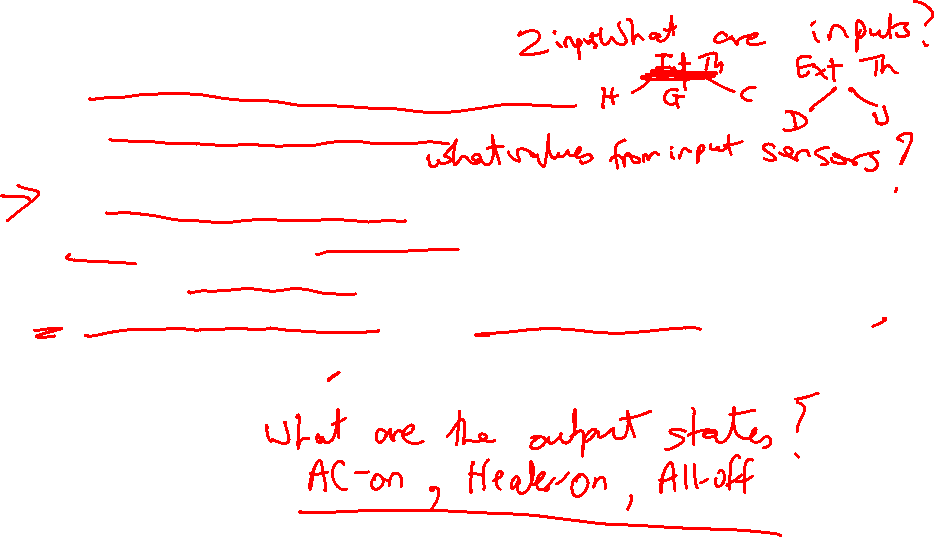 2 inputs What are inputs?
Int Th Ext Th
H G C D U
what values from input sensors?
What are the output states?
AC-on, Heater-on, All-off